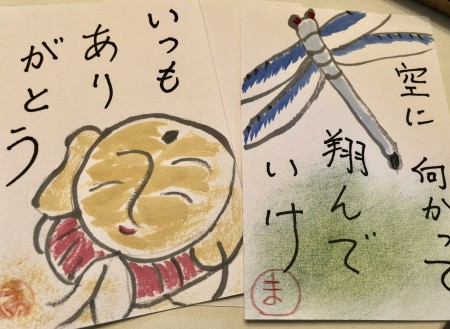 いつも
あり
がとう
空に
向かって
翔んで
いけ
ま